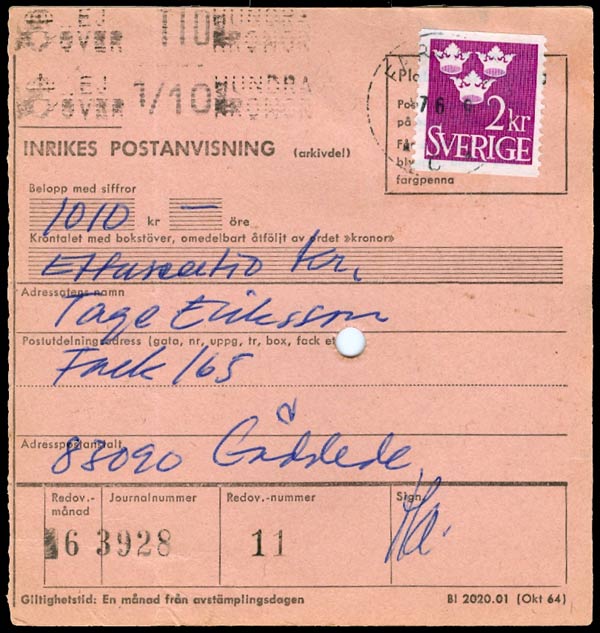 EJ ÖVER 1/10 HUNDRA KRONOR
EJ ÖVER 1/10 HUNDRA KRONOR
2 kr
SVERIGE
76
INRIKES POSTANVISNING (arkivdel)
färgpenna
Belopp med siffror
1010 kr — öre
Krontalet med bokstäver, omedelbart åtföljt av ordet »kronor»
Ettusentio kr.
Adressatens namn
Tage Eriksson
Postutdelningsadress (gata, nr, uppg, tr, box, fack
Fack 165
Adresspostanstalt
83090 Gäddede
Redov.-månad Journalnummer Redov.-nummer Sign
6 3928 11
Giltighetstid: En månad från avstämplingsdagen BI 2020.01 (Okt 64)